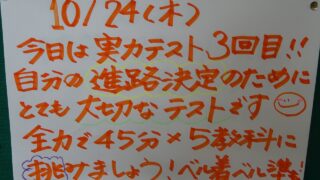 10/24(木)
今日は実力テスト3回目!!
自分の進路決定のために
とても大切なテストです
全力で45分×5教科に
挑みましょう!ベル着ベル準!